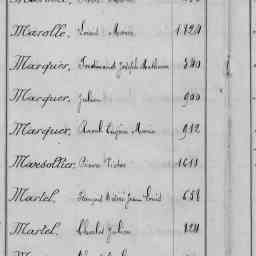 Marolle, Louis Marie 1824
Marquer, Ferdinand Joseph Mathurin 340
Marquer, Julien 900
Marquer, Eugène Marie 912
Marsollier, Pierre Victor 1611
Martel, François Jean Louis 658
Martel, Charles Julien 824